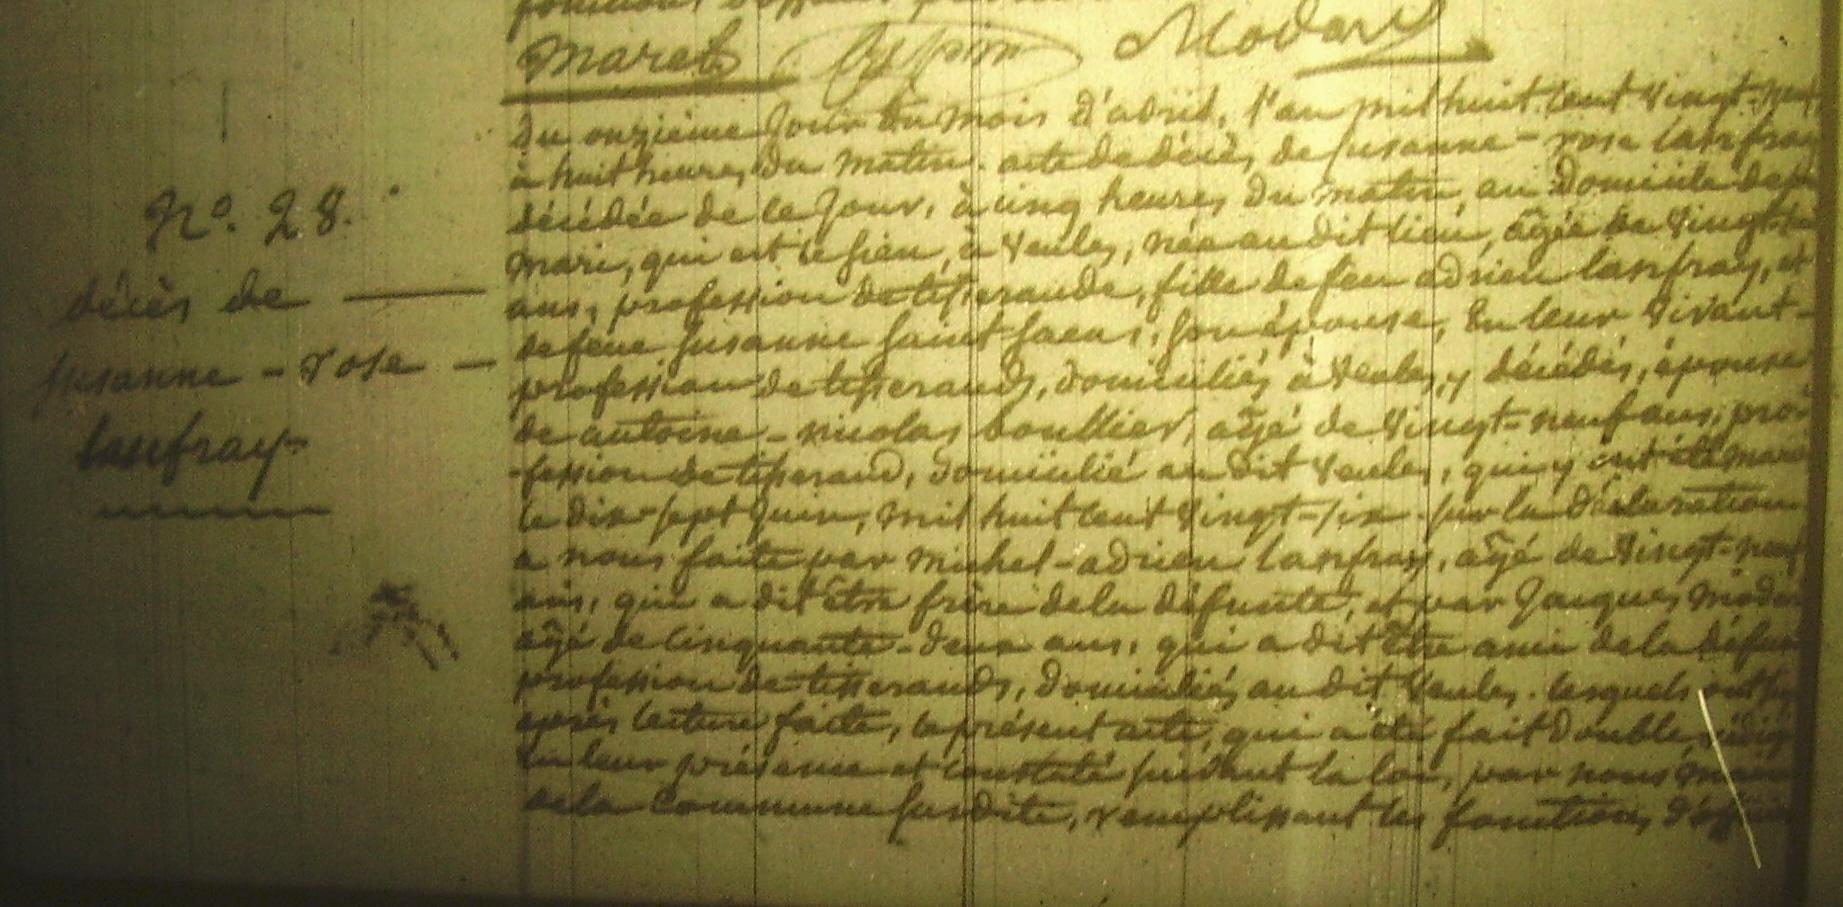 maret Modard
N.º 28.
décès de
susanne - rose -
lanfray
Du onzième jour du mois d'abril, l'an mil huit cent vingt-neuf
à huit heures du matin. acte de décès de susanne - rose lanfray
décédée de ce jour, à cinq heures du matin, au domicile de son
mari, qui est le sien, à veules, née au dit lieu, âgée de vingt
ans, profession de tisserande, fille de feu adrien lanfray, et
de feue susanne saint saens, son épouse, en leur vivant -
profession de tisserands, domiciliés à veules, y décédés, épouse
de antoine - nicolas boullier, âgé de vingt-neuf ans, pro-
-fession de tisserand, domicilié au dit veules, qui y ont été mariés
le dix-sept juin, mil huit cent vingt-six sur la déclaration
a nous faite par michel - adrien lanfray, âgé de vingt-neuf
ans, qui a dit être frère de la défunte, et par jacques modard
âgé de cinquante-deux ans, qui a dit être ami de la défunte
profession de tisserands, domiciliés au dit veules. lesquels ont
après lecture faite, le présent acte, qui a été fait double, rédigé
en leur présence et constaté suivant la loi, par nous maire
de la commune susdite, remplissant les fonctions d'officier